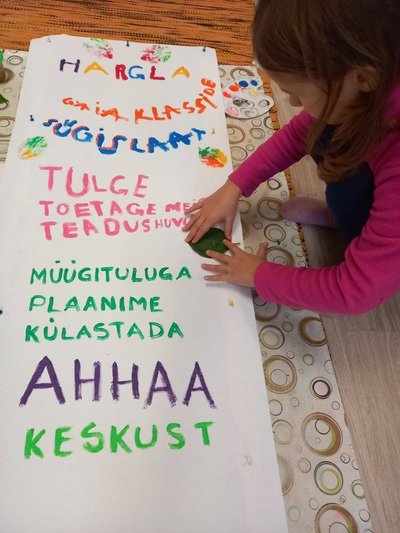 HARGLA
GAIA KLASSIDE
SÜGISLAAT
TULGE
TOETAGE
TEADUSHUV
MÜÜGITULUGA
PLAANIME
KÜLASTADA
AHHAA
KESKUST